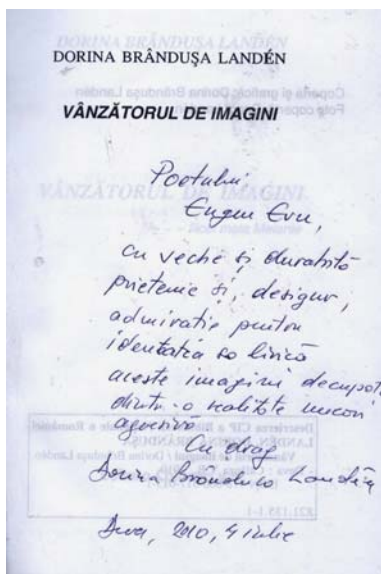 DORINA BRÂNDUȘA LANDÉN
VÂNZĂTORUL DE IMAGINI
Poetului
Eugen Evu,
cu veche și durabilă
prietenie și, desigur,
admirație pentru
identitatea sa lirică
aceste imagini decupate
dintr-o realitate uneori
agresivă
Cu drag
Dorina Brândușa Landén
Deva, 2010, 4 iulie